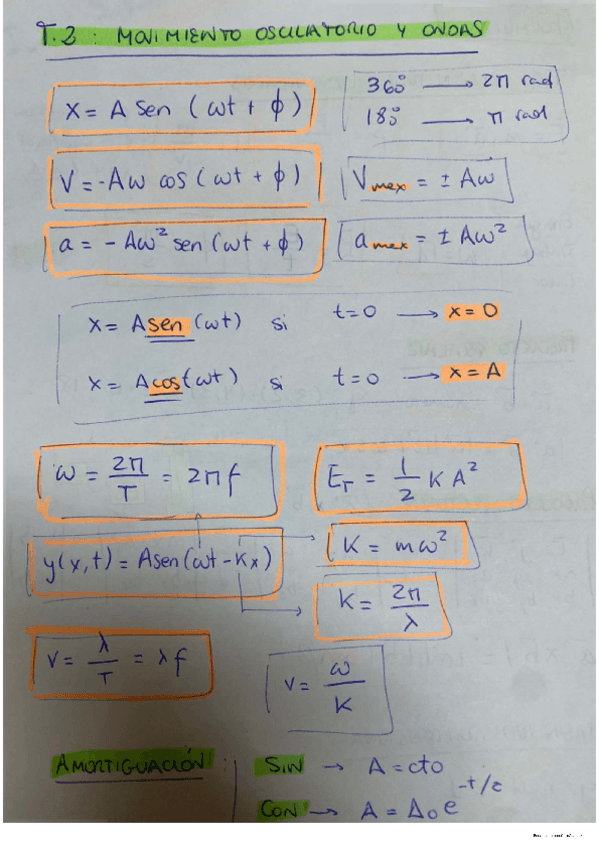 T.2: MOVIMIENTO OSCILATORIO Y ONDAS
x = A sen (ωt + ϕ)
360° → 2π rad
180° → π rad
v = -Aω cos (ωt + ϕ)
Vmax = ± Aω
a = - Aω² sen (ωt + ϕ)
amax = ± Aω²
x = A sen (ωt) si t=0 → x=0
x = A cos (ωt) si t=0 → x=A
ω = 2π/T = 2πf
ET = 1/2 K A²
y(x,t) = A sen (ωt - Kx)
K = mω²
K = 2π/λ
v = λ/T = λf
v = ω/K
AMORTIGUACIÓN:
SIN → A = cto
CON → A = A₀ e^-t/τ